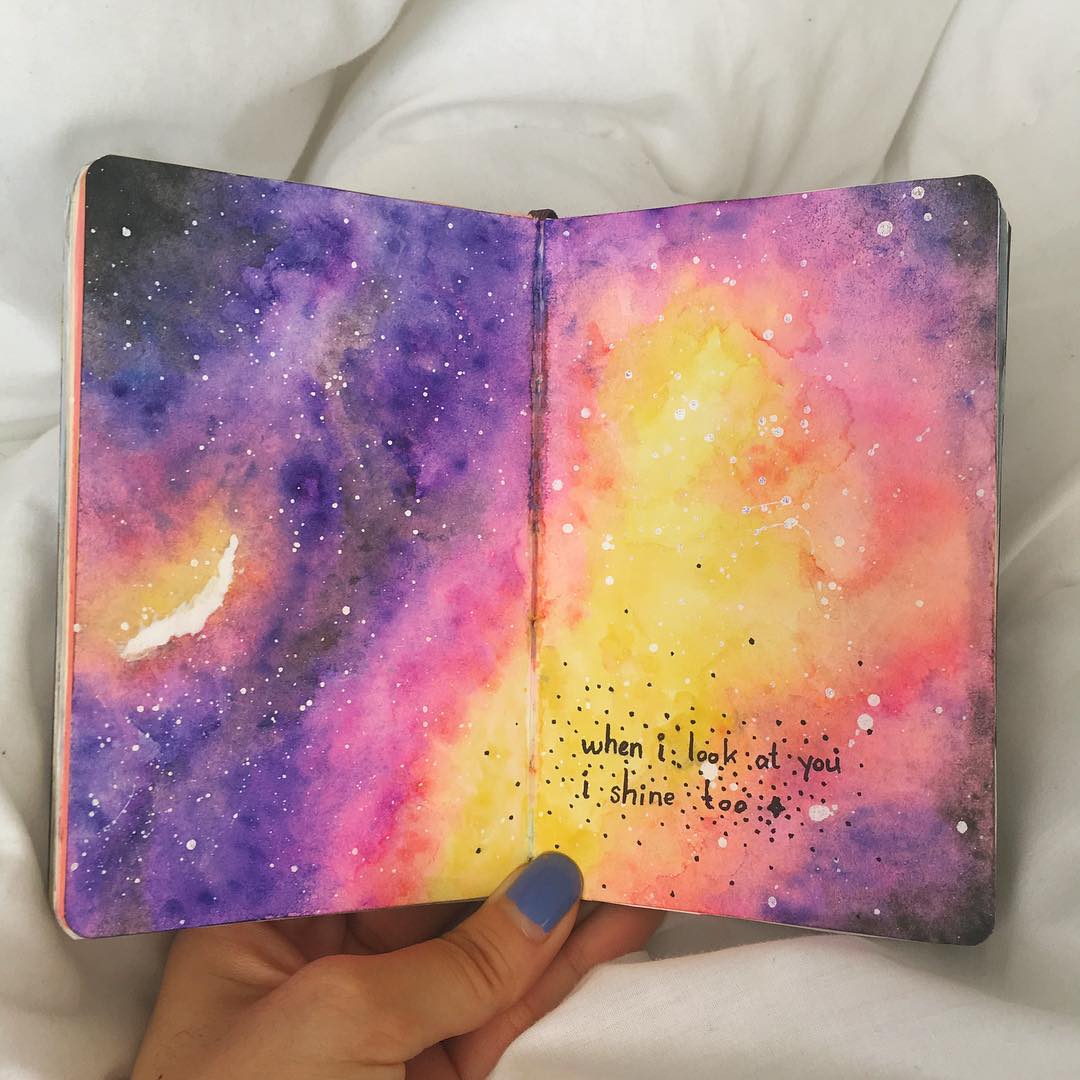 when i look at you
i shine too